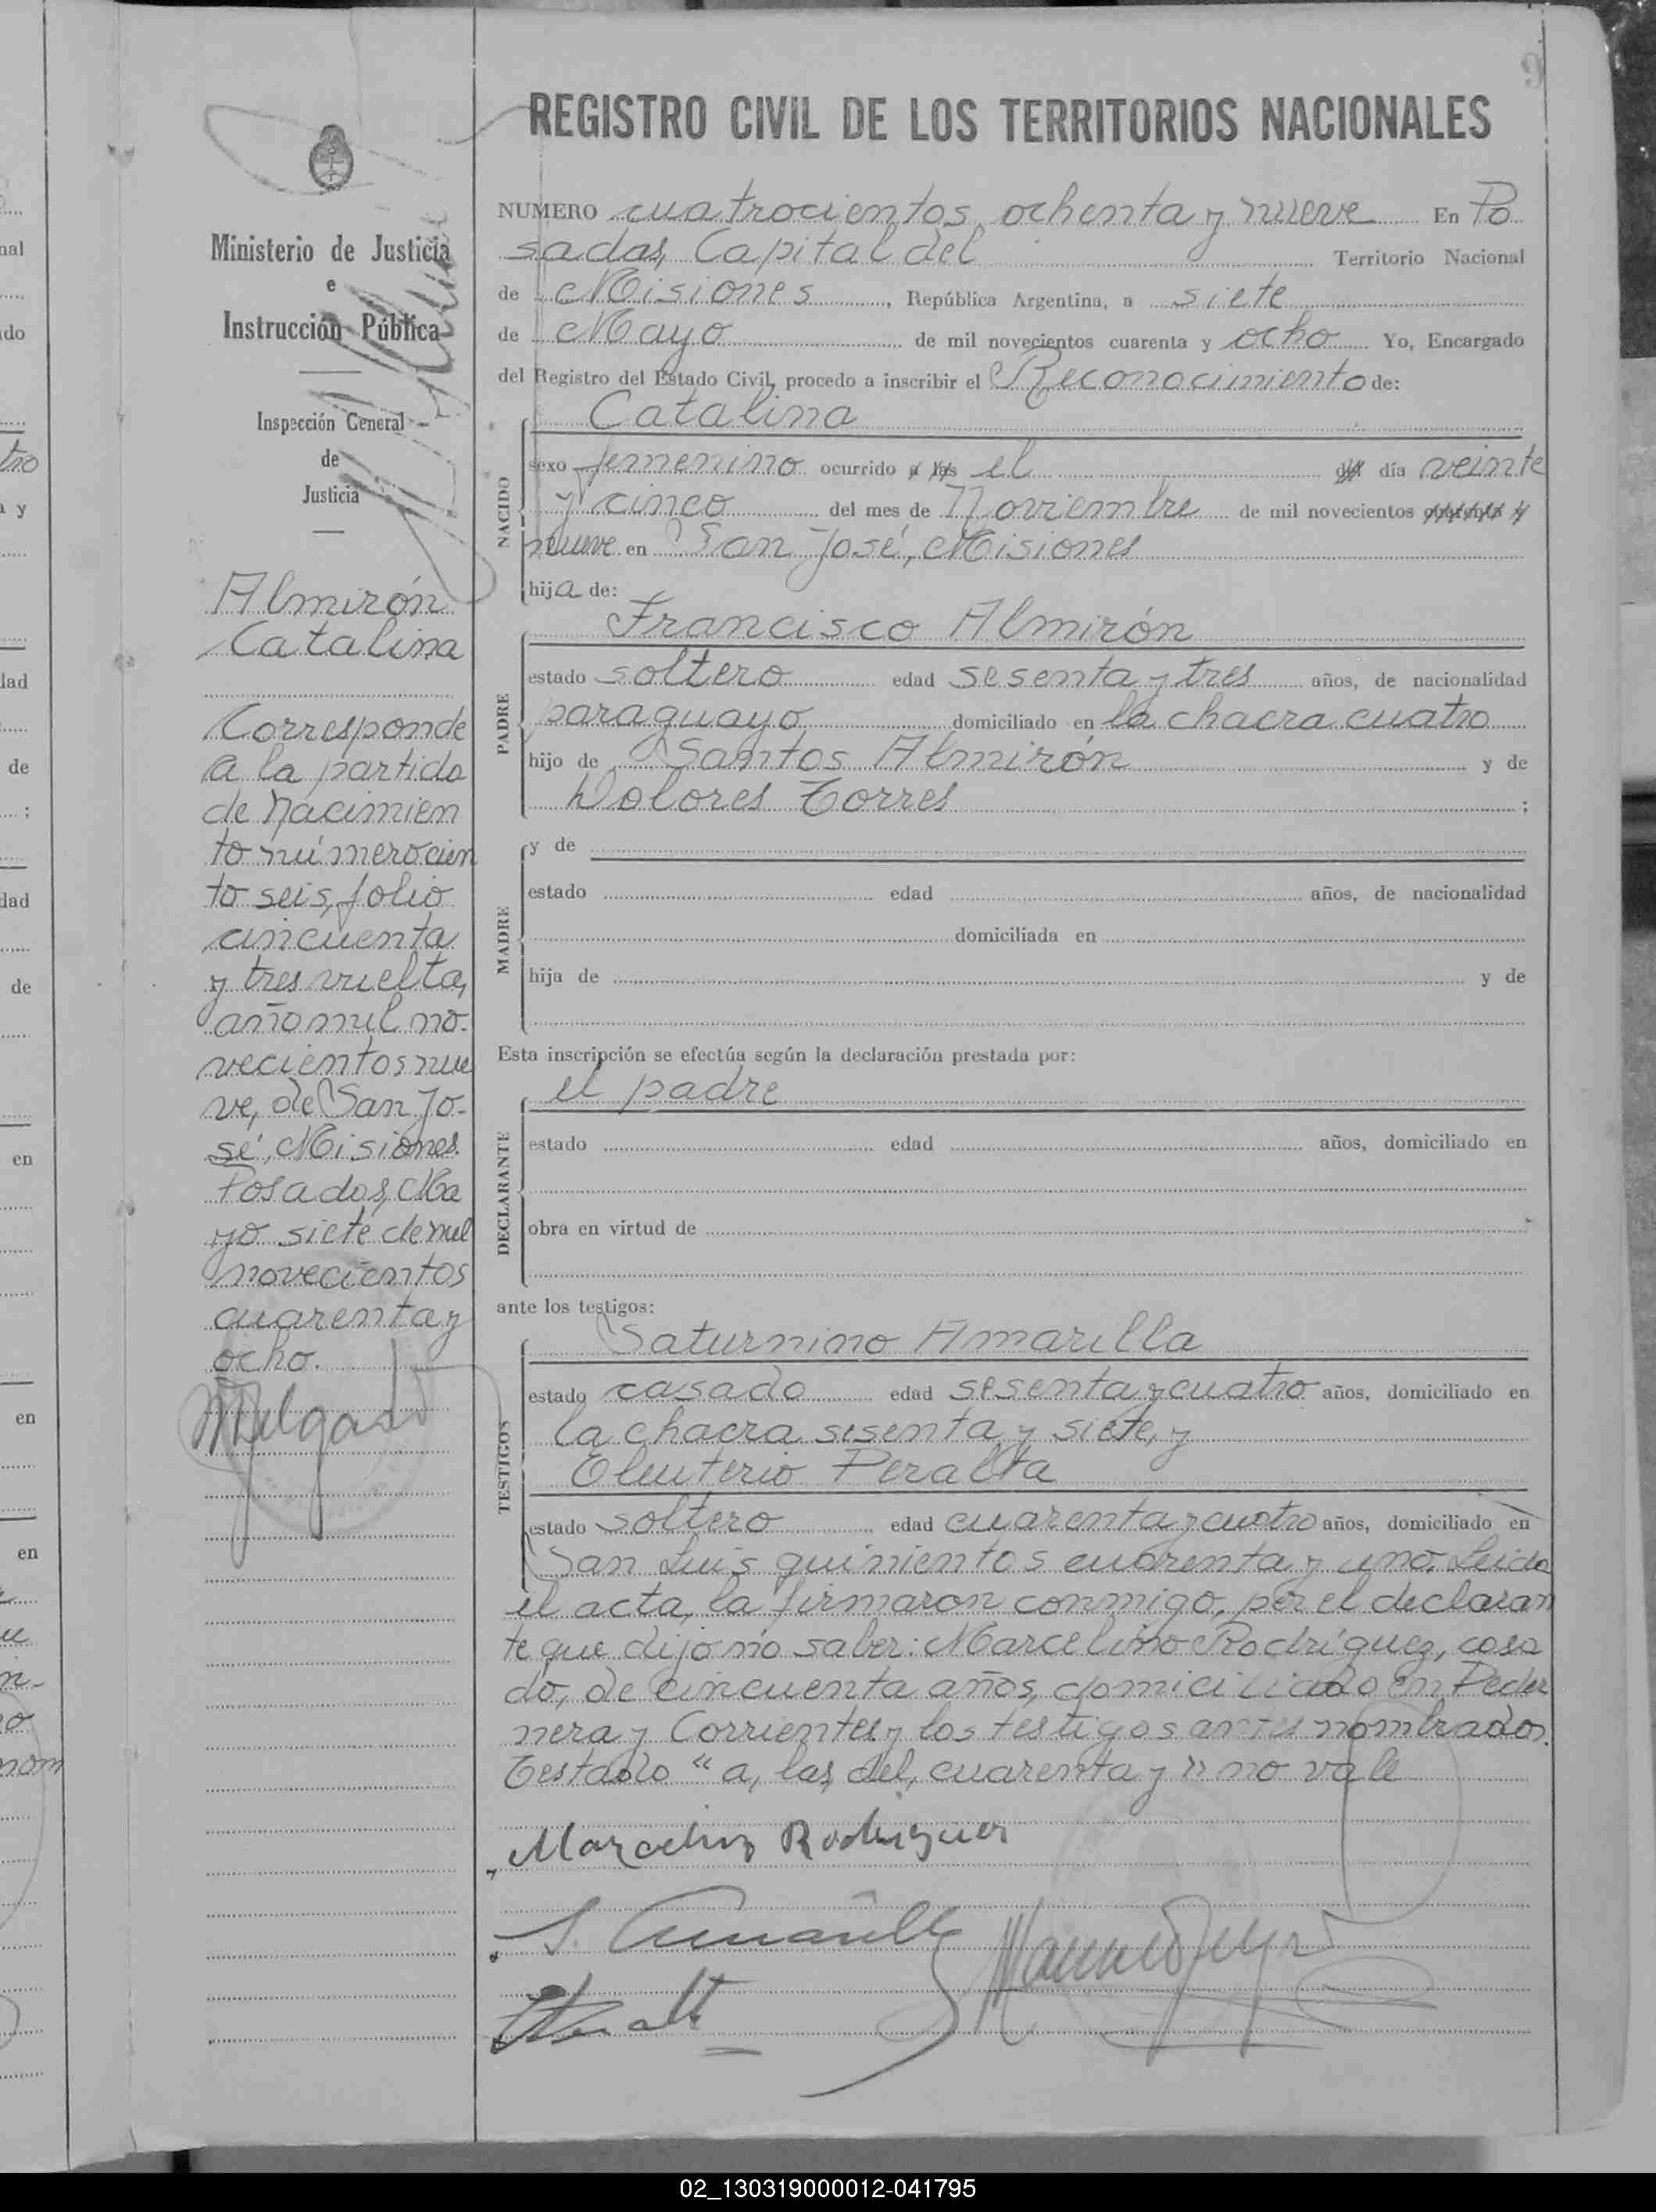 REGISTRO CIVIL DE LOS TERRITORIOS NACIONALES
Ministerio de Justicia
e
Instrucción Pública
Inspección General
de
Justicia
Almirón
Catalina
Corresponde
a la partida
de nacimien
to número cien
to seis, folio
cincuenta
y tres vuelta,
año mil no-
vecientos nue
ve, de San Jo-
sé, Misiones.
Posadas, Ma
yo siete de mil
novecientos
cuarenta y
ocho.
NUMERO cuatrocientos ochenta y nueve En Po
sadas, Capital del Territorio Nacional
de Misiones, República Argentina, a siete
de Mayo de mil novecientos cuarenta y ocho Yo, Encargado
del Registro del Estado Civil, procedo a inscribir el Reconocimiento de:
NACIDO
Catalina
sexo femenino ocurrido a las el del día veinte
y cinco del mes de Noviembre de mil novecientos cuarenta y
nueve en San José, Misiones
hija de:
PADRE
Francisco Almirón
estado soltero edad sesenta y tres años, de nacionalidad
paraguayo domiciliado en la chacra cuatro
hijo de Santos Almirón y de
Dolores Torres ;
MADRE
y de
estado edad años, de nacionalidad
domiciliada en
hija de y de
Esta inscripción se efectúa según la declaración prestada por:
DECLARANTE
el padre
estado edad años, domiciliado en
obra en virtud de
ante los testigos:
TESTIGOS
Saturnino Amarilla
estado casado edad sesenta y cuatro años, domiciliado en
la chacra sesenta y siete, y
Eleuterio Peralta
estado soltero edad cuarenta y cuatro años, domiciliado en
San Luis quinientos cuarenta y uno. Leída
el acta, la firmaron conmigo, por el declaran
te que dijo no saber: Marcelino Rodríguez, casa
do, de cincuenta años, domiciliado en Peder
nera y Corrientes y los testigos antes nombrados.
Testado "a, las, del, cuarenta y" no vale
Marcelino Rodriguez
S. Amarilla
02_130319000012-041795